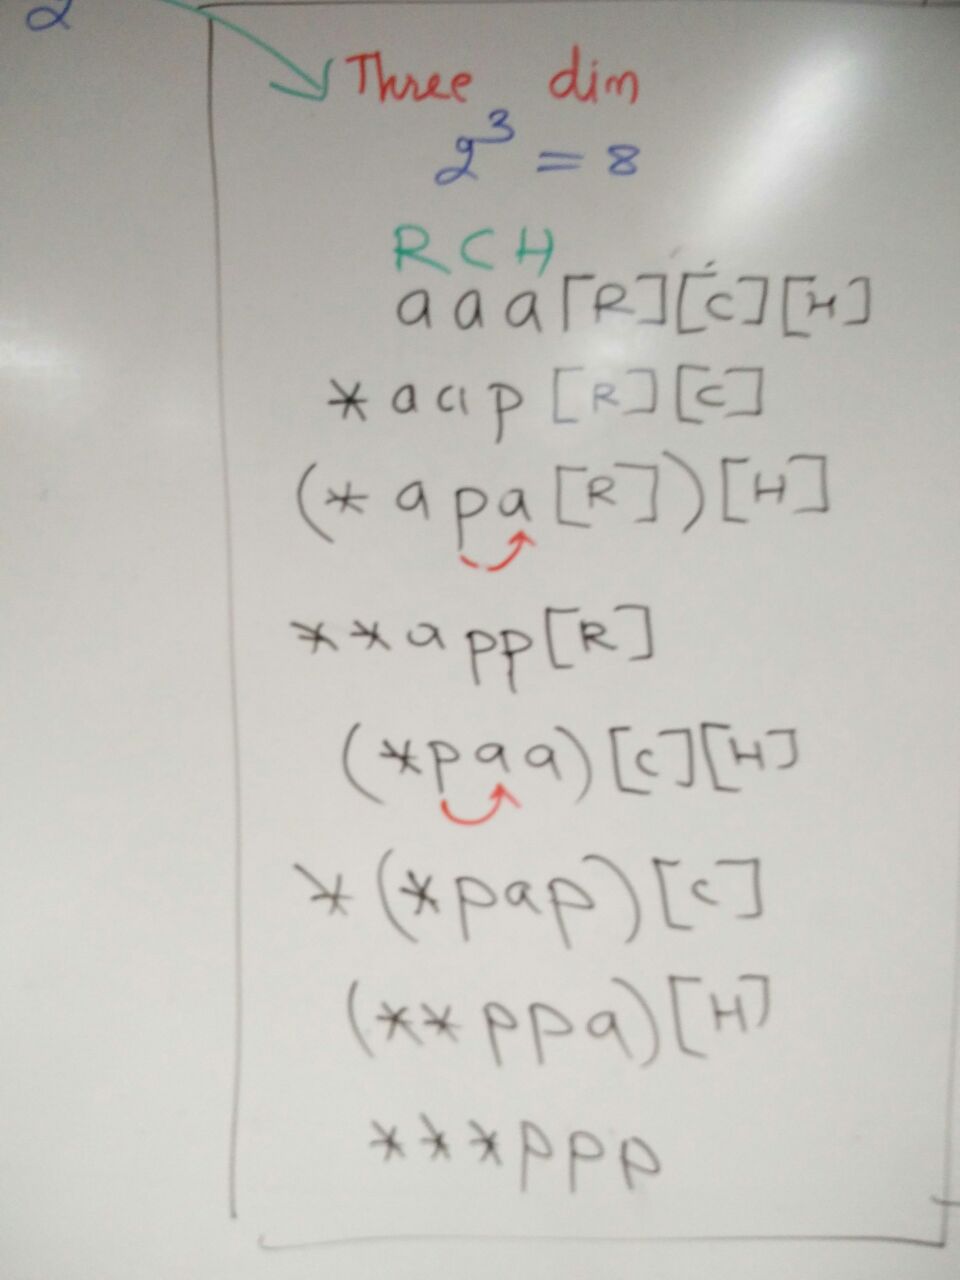 2
Three dim
2³ = 8
R C H
a a a [R][C][H]
* a a p [R][C]
(* a p a [R])[H]
**a pp[R]
(*p a a)[C][H]
*(*pap)[C]
(**ppa)[H]
***ppp